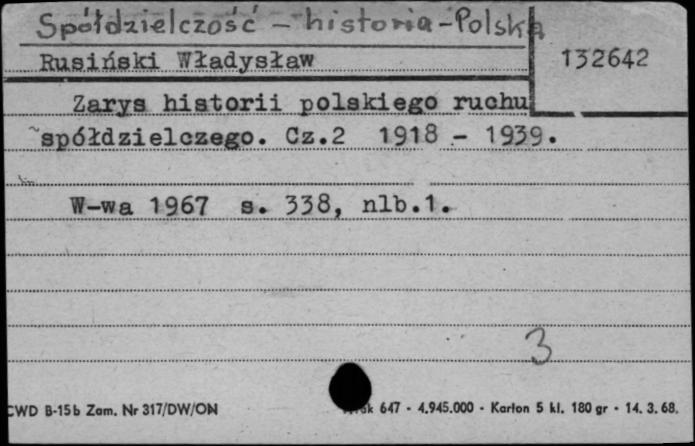 Spółdzielczość - historia - Polska
Rusiński Władysław
132642
Zarys historii polskiego ruchu
spółdzielczego. Cz.2 1918 - 1939.
W-wa 1967 s. 338, nlb.1.
3
CWD B-15b Zam. Nr 317/DW/ON 647 - 4.945.000 - Karton 5 kl. 180 gr - 14. 3. 68.